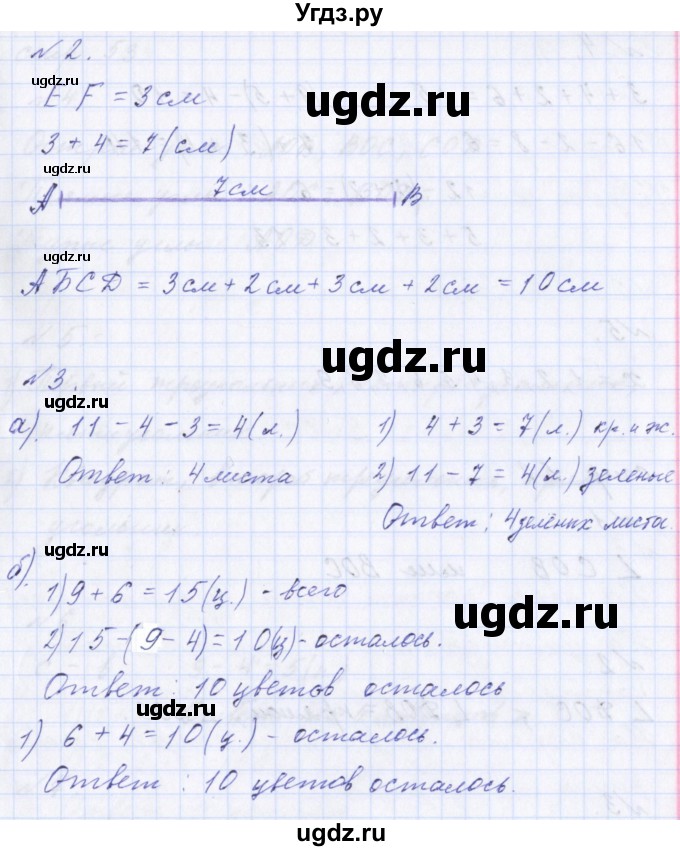 Угдз.ру
№2.
EF = 3 см
3 + 4 = 7 (см)
ugdz.ru
ugdz.ru
A 7 см В
АБСД = 3 см + 2 см + 3 см + 2 см = 10 см
ugdz.ru
№3.
ugdz.ru
а). 11 - 4 - 3 = 4 (л.)
Ответ : 4 листа
1) 4 + 3 = 7 (л.) кр. и ж.
2) 11 - 7 = 4 (л.) зеленые
Ответ : 4 зелёных листа.
ugdz.ru
б).
1) 9 + 6 = 15 (ц.) - всего
ugdz.ru
2) 15 - (9 - 4) = 10 (ц) - осталось.
Ответ : 10 цветов осталось
ugdz.ru
1) 6 + 4 = 10 (ц.) - осталось.
Ответ : 10 цветов осталось.
ugdz.ru